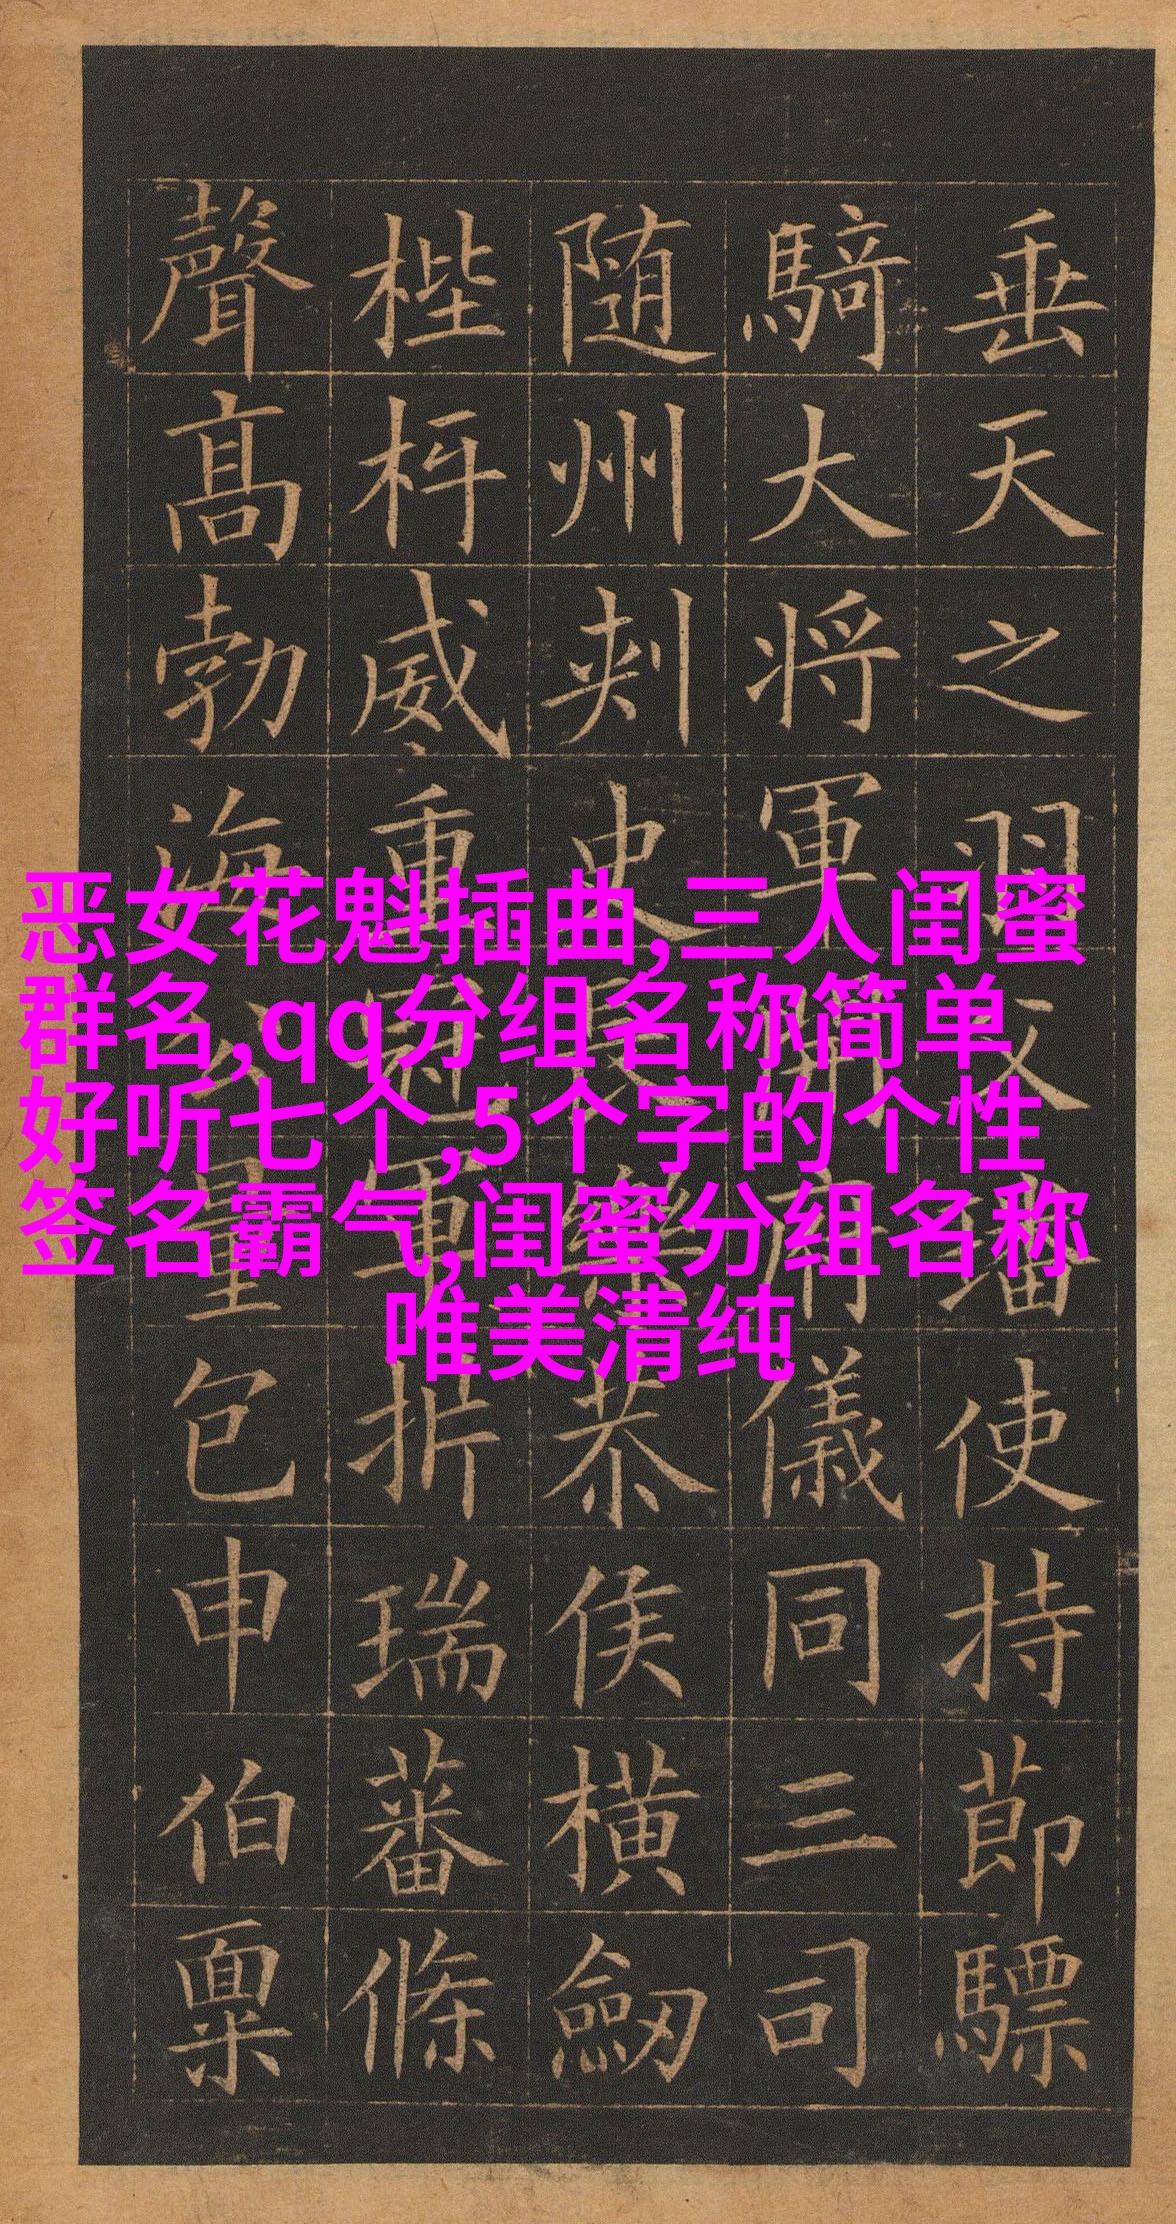 恶女花魁插曲,三人闺蜜
群名,qq分组名称简单
好听七个,5个字的个性
签名霸气,闺蜜分组名称
唯美清纯
垂天之羽父璠使持節驃
騎大将軍開府儀同三司
随州刾史長樂恭侯横劒
梐枑威重冠軍析瑞蕃條
聲髙勃海量包申伯稟